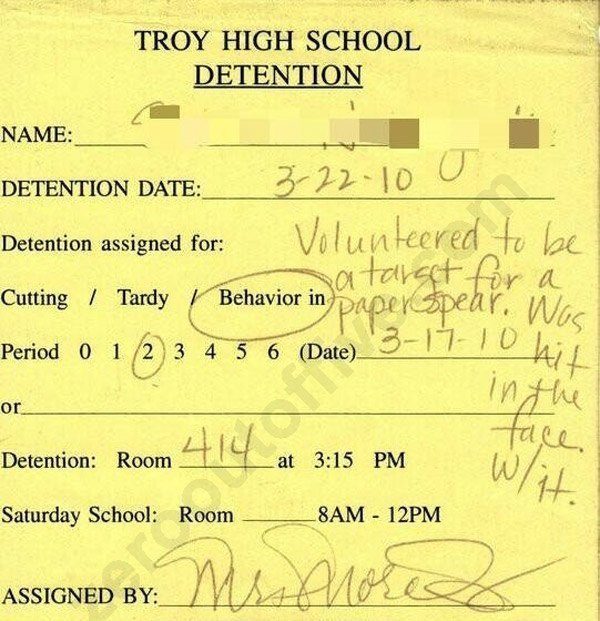 TROY HIGH SCHOOL
DETENTION
NAME:
DETENTION DATE: 3-22-10
Detention assigned for: Volunteered to be
a target for a
Cutting / Tardy / Behavior in paper spear. Was
Period 0 1 2 3 4 5 6 (Date) 3-17-10 hit
in the
or
face.
Detention: Room 414 at 3:15 PM
W/it.
Saturday School: Room 8AM - 12PM
ASSIGNED BY: Mrs